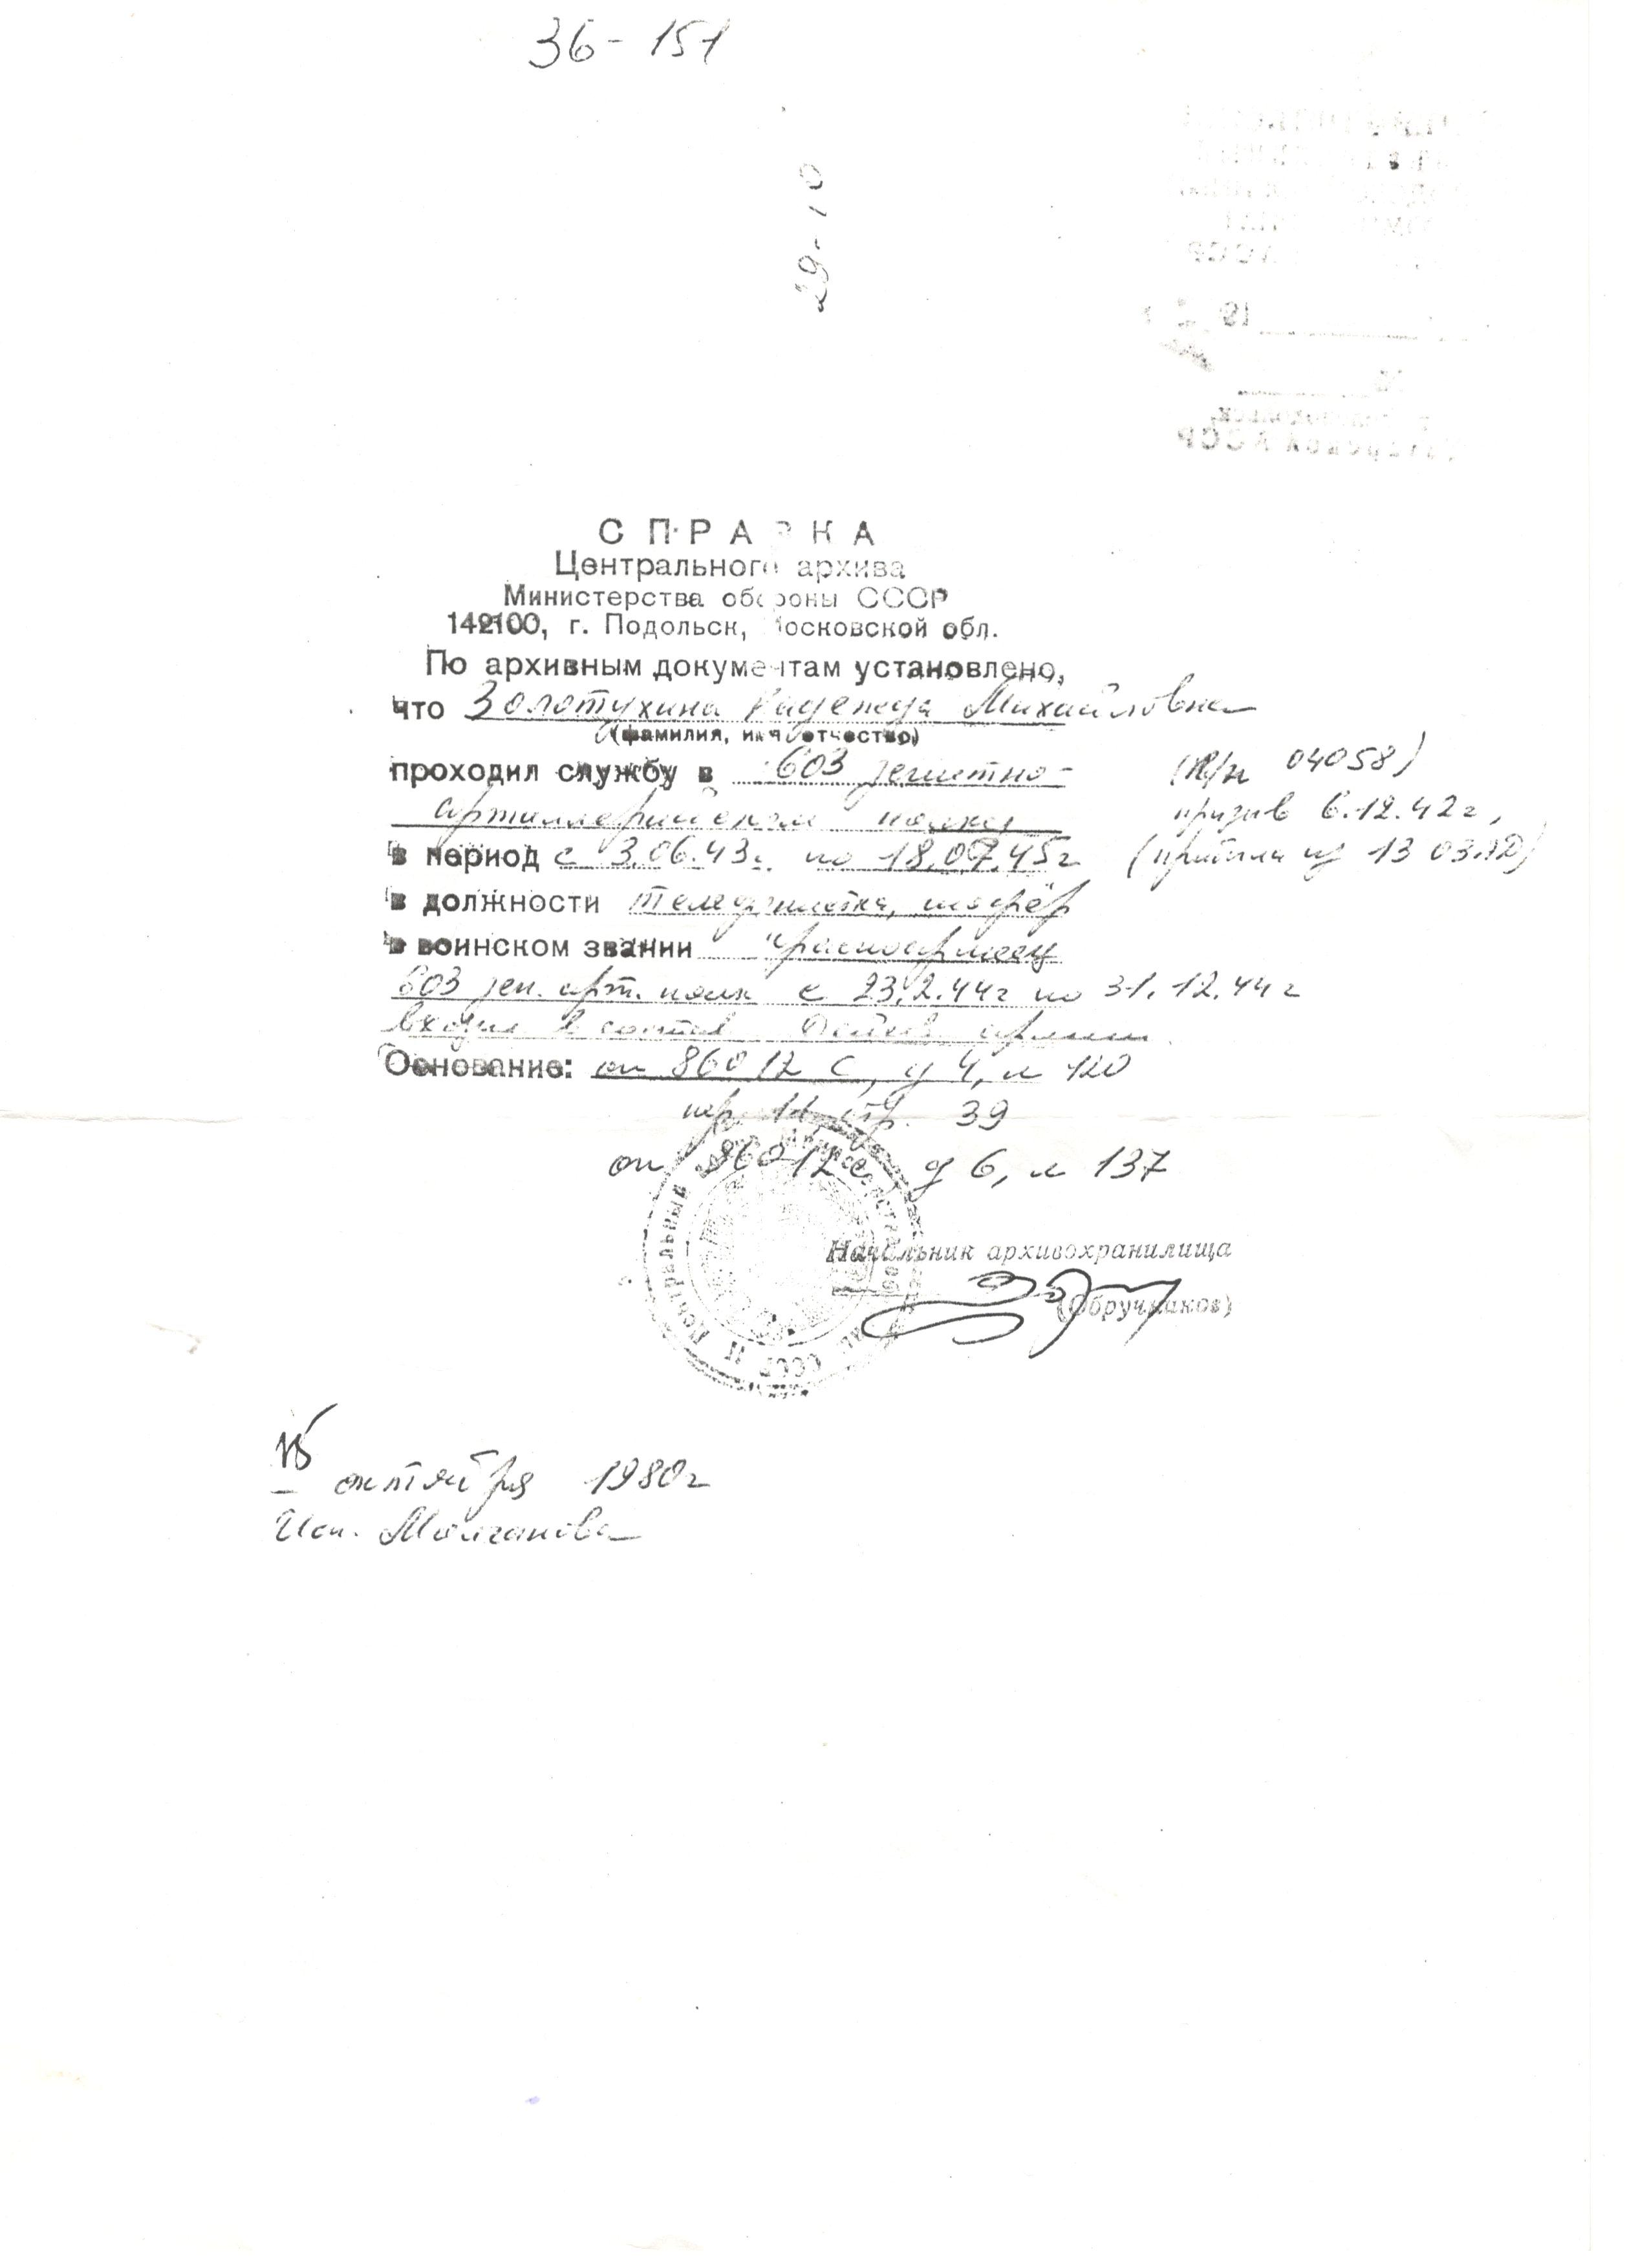 36-151
29-10
СПРАВКА
Центрального архива
Министерства обороны СССР
142100, г. Подольск, Московской обл.
По архивным документам установлено,
что Золотухина Надежда Михайловна
(фамилия, имя отчество)
проходил службу в 603 зенитно- (п/п 04058)
артиллерийском полку призыв 6.12.42г,
в период с 3.06.43г. по 18.07.45г (прибыла из 13 03АД)
в должности телефонистка, шофёр
в воинском звании красноармеец
603 зен. арт. полк с 23.2.44г по 31.12.44г
входил в состав Действ армии
Основание: оп 86012 с, д 4, л 120
стр. 39
оп 86012с д 6, л 137
Начальник архивохранилища
(Обручников)
октября 1980г
Исп. Молчанова